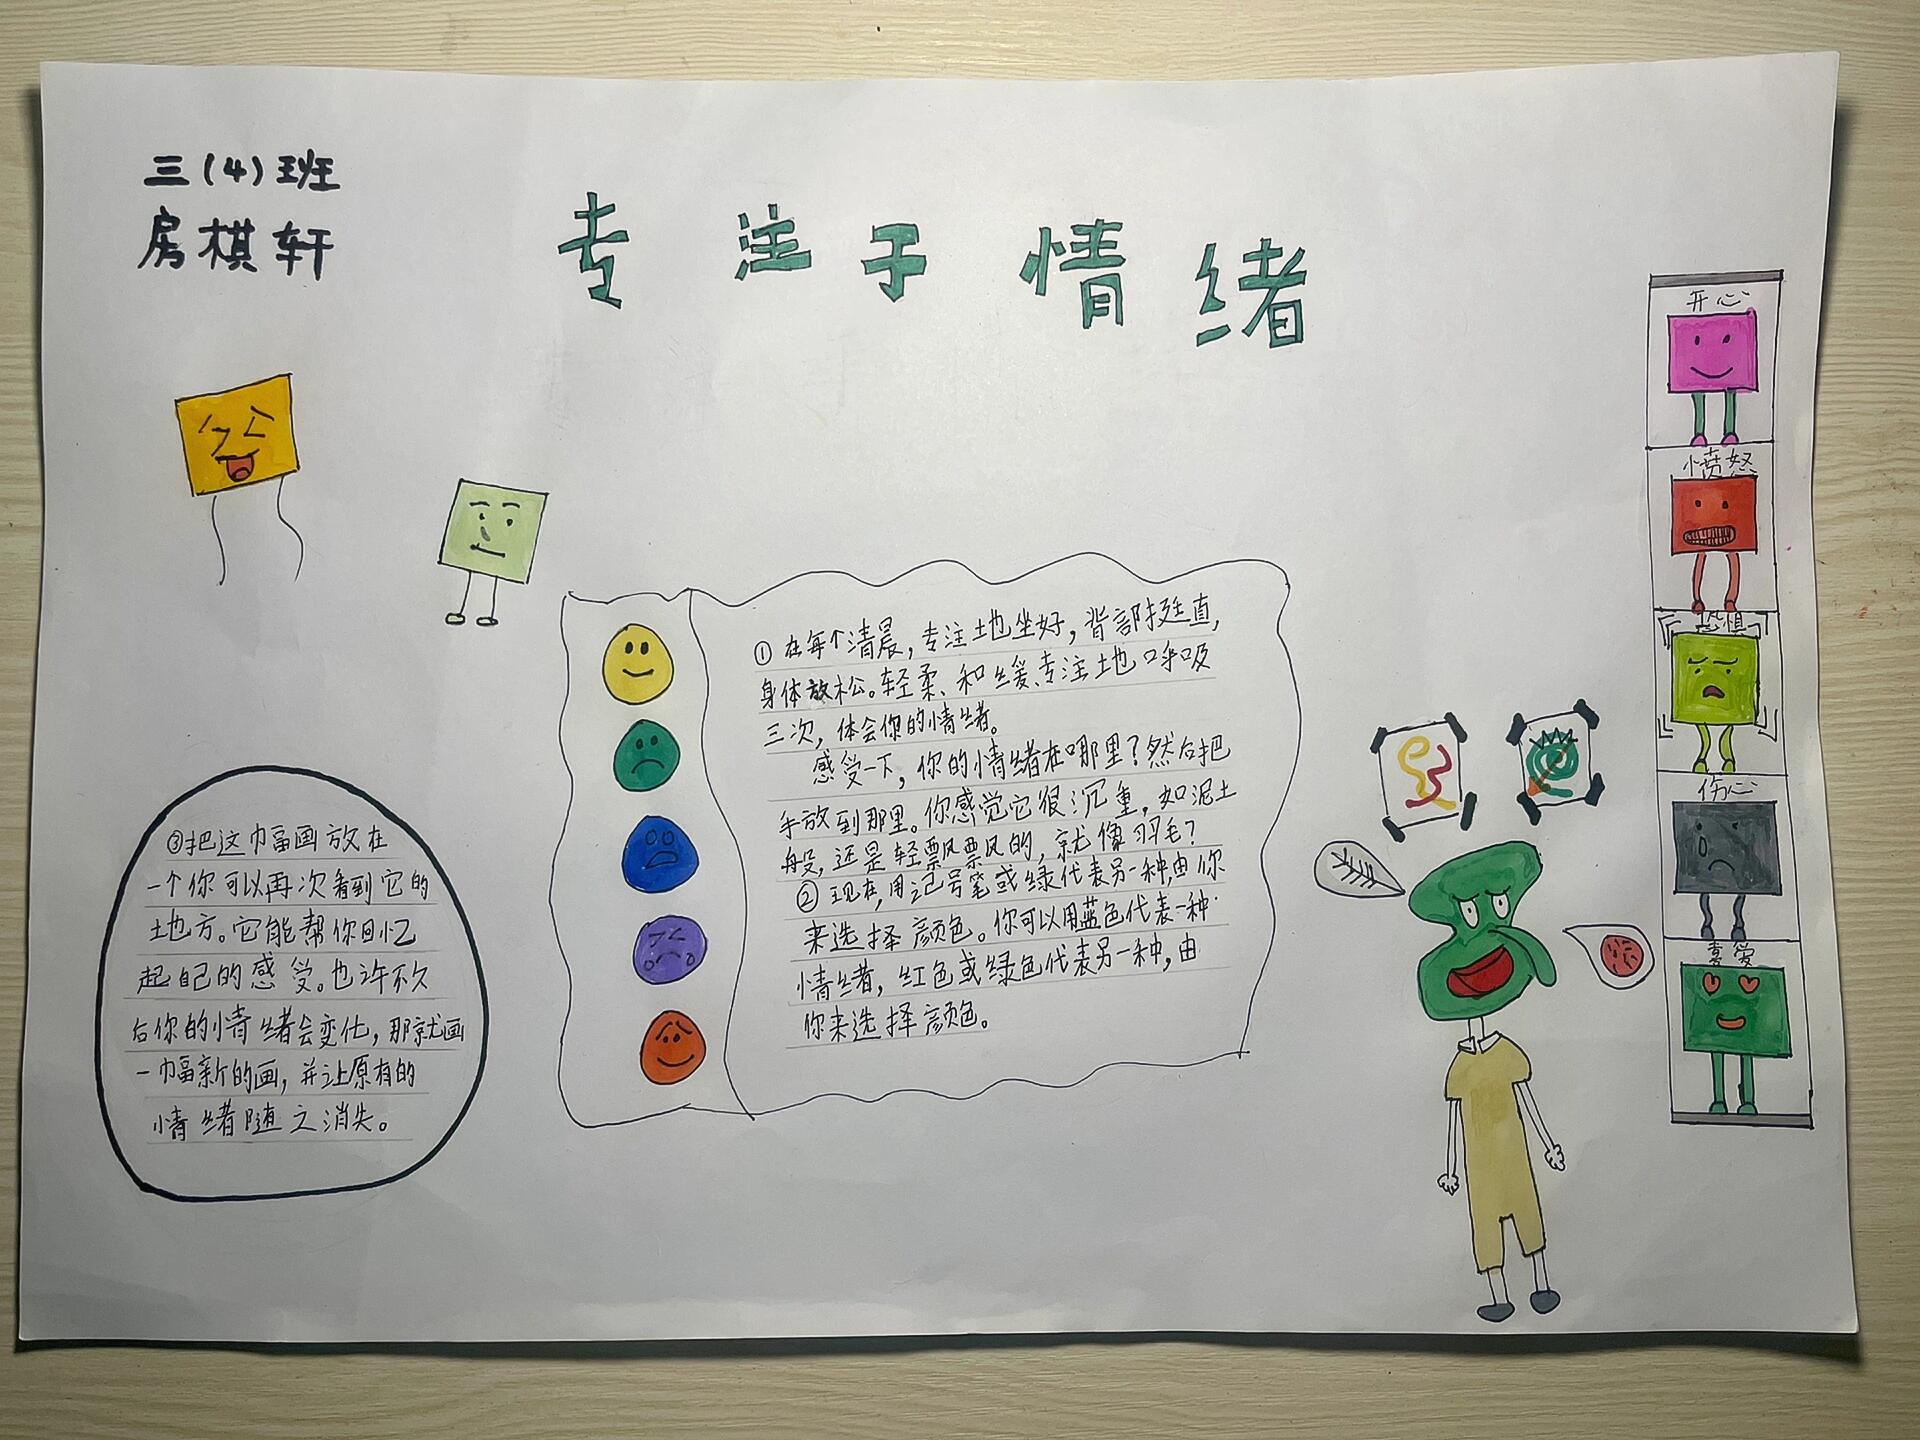 三(4)班
房棋轩
专注于情绪
①在每个清晨,专注地坐好,背部挺直,
身体放松。轻柔、和缓、专注地呼吸
三次,体会你的情绪。
感受一下,你的情绪在哪里?然后把
手放到那里。你感觉它很沉重,如泥土
般,还是轻飘飘的,就像羽毛?
②现在,用记号笔或绿代表另一种,由你
来选择颜色。你可以用蓝色代表一种
情绪,红色或绿色代表另一种,由
你来选择颜色。
③把这幅画放在
一个你可以再次看到它的
地方。它能帮你回忆
起自己的感受。也许不久
后你的情绪会变化,那就画
一幅新的画,并让原有的
情绪随之消失。
开心
愤怒
恐惧
伤心
喜爱